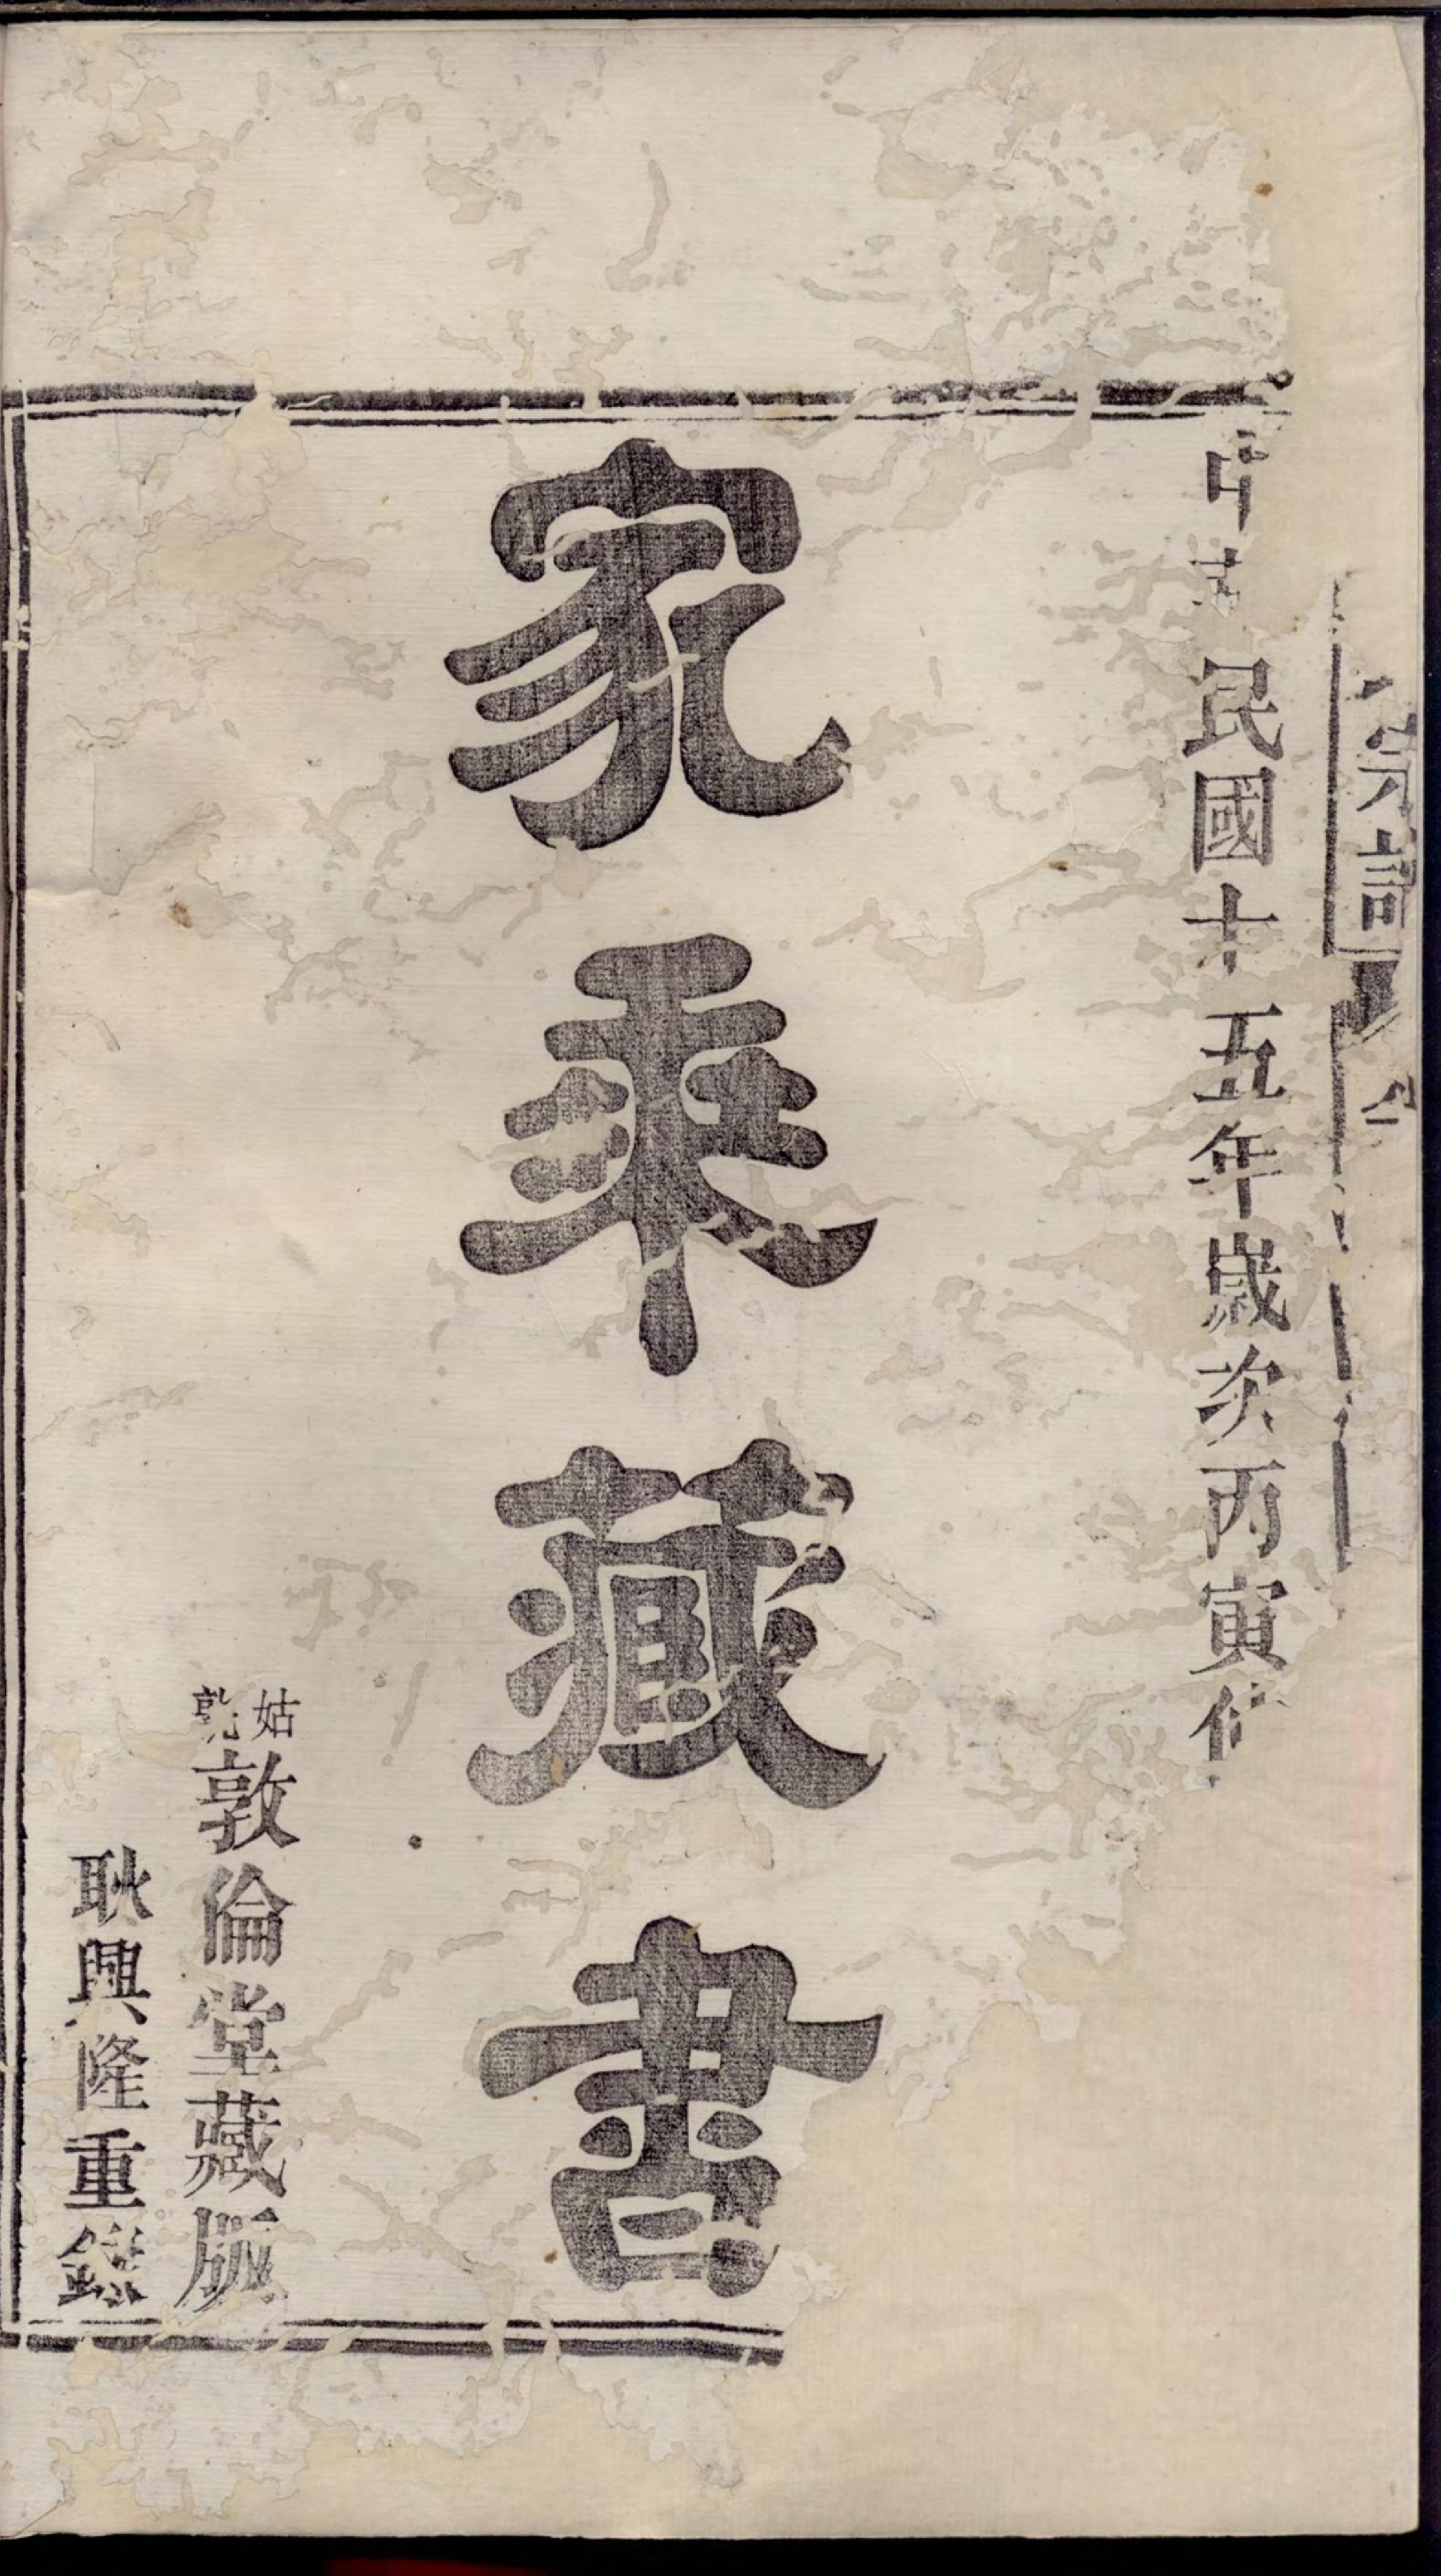 中華民國十五年歲次丙寅
家乘藏書
姑孰敦倫堂藏版
耿興隆重鐫